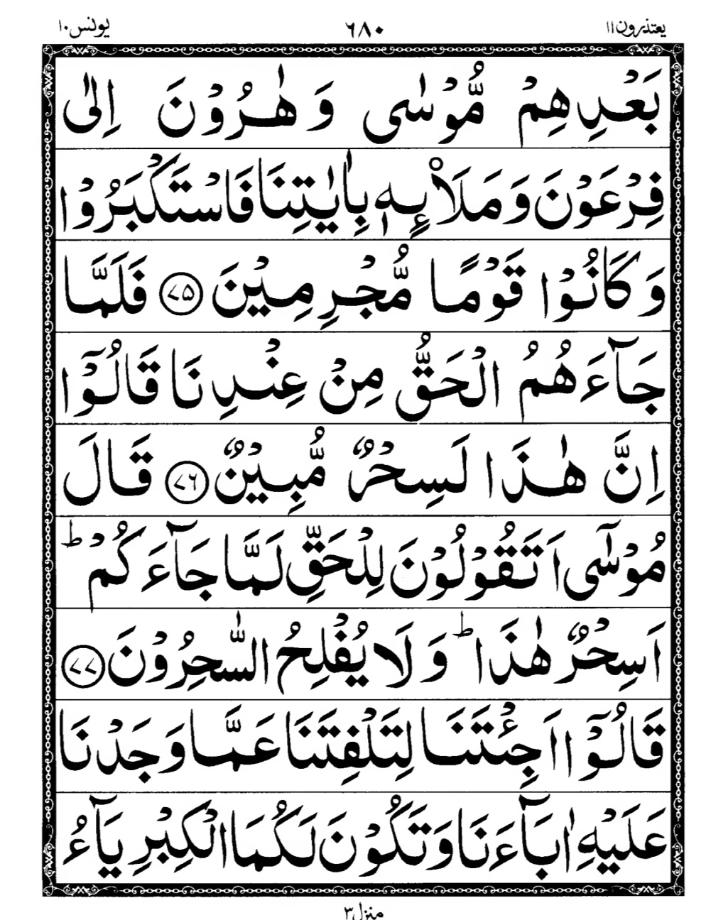 یعتذرون۱۱ ۶۸۰ یونس۱۰
بَعْدِهِمْ مُّوْسٰی وَ هٰرُوْنَ اِلٰی
فِرْعَوْنَ وَ مَلَا۠ئِهٖ بِاٰیٰتِنَا فَاسْتَكْبَرُوْا
وَ كَانُوْا قَوْمًا مُّجْرِمِیْنَ ﴿۷۵﴾ فَلَمَّا
جَآءَهُمُ الْحَقُّ مِنْ عِنْدِنَا قَالُوْۤا
اِنَّ هٰذَا لَسِحْرٌ مُّبِیْنٌ ﴿۷۶﴾ قَالَ
مُوْسٰۤی اَتَقُوْلُوْنَ لِلْحَقِّ لَمَّا جَآءَكُمْ ؕ
اَسِحْرٌ هٰذَا ؕ وَ لَا یُفْلِحُ السّٰحِرُوْنَ ﴿۷۷﴾
قَالُوْۤا اَجِئْتَنَا لِتَلْفِتَنَا عَمَّا وَجَدْنَا
عَلَیْهِ اٰبَآءَنَا وَ تَكُوْنَ لَكُمَا الْكِبْرِیَآءُ
منزل۳